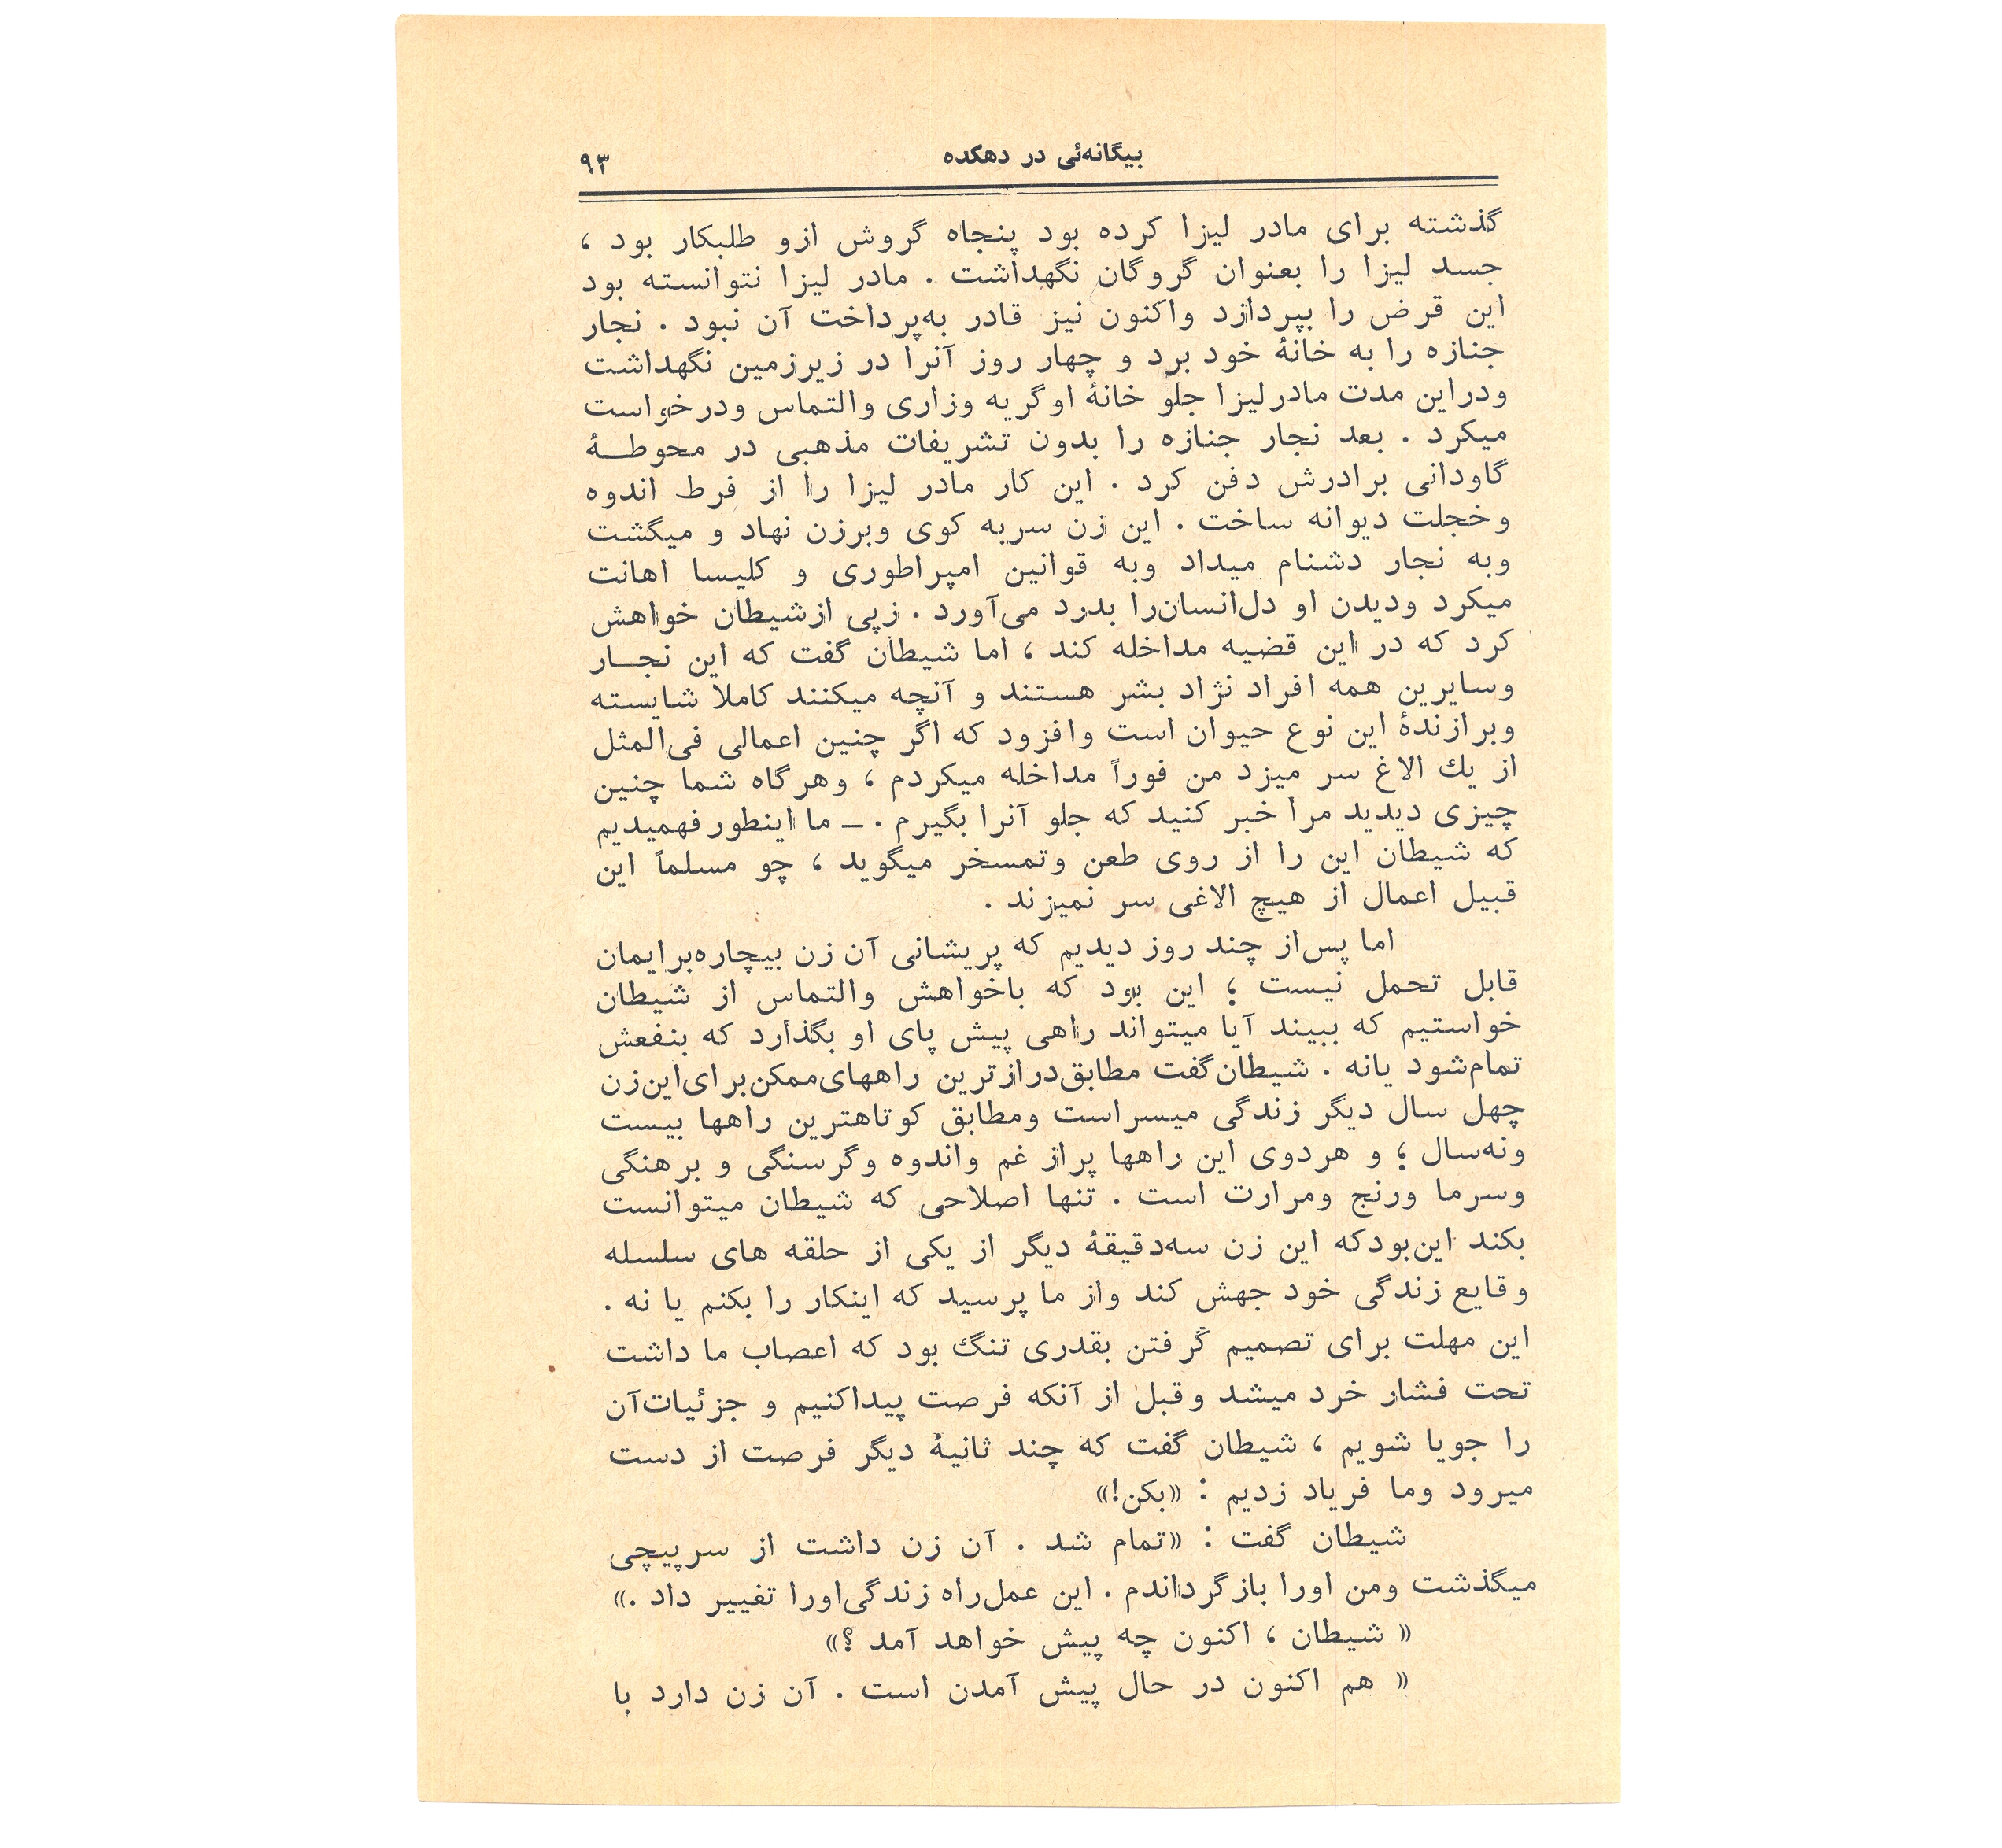 بیگانه‌ئی در دهکده
۹۳
گذشته برای مادر لیزا کرده بود پنجاه گروش ازو طلبکار بود ،
جسد لیزا را بعنوان گروگان نگهداشت . مادر لیزا نتوانسته بود
این قرض را بپردازد واکنون نیز قادر به‌پرداخت آن نبود . نجار
جنازه را به خانهٔ خود برد و چهار روز آنرا در زیرزمین نگهداشت
ودراین مدت مادرلیزا جلو خانهٔ اوگریه وزاری والتماس ودرخواست
میکرد . بعد نجار جنازه را بدون تشریفات مذهبی در محوطــهٔ
گاودانی برادرش دفن کرد . این کار مادر لیزا را از فرط اندوه
وخجلت دیوانه ساخت . این زن سربه کوی وبرزن نهاد و میگشت
وبه نجار دشنام میداد وبه قوانین امپراطوری و کلیسا اهانت
میکرد ودیدن او دل‌انسان‌را بدرد می‌آورد . زپی ازشیطان خواهش
کرد که در این قضیه مداخله کند ، اما شیطان گفت که این نجــار
وسایرین همه افراد نژاد بشر هستند و آنچه میکنند کاملا شایسته
وبرازندهٔ این نوع حیوان است وافزود که اگر چنین اعمالی فی‌المثل
از یك الاغ سر میزد من فوراً مداخله میکردم ، وهرگاه شما چنین
چیزی دیدید مرا خبر کنید که جلو آنرا بگیرم . ـ ما اینطور فهمیدیم
که شیطان این را از روی طعن وتمسخر میگوید ، چو مسلماً این
قبیل اعمال از هیچ الاغی سر نمیزند .
اما پس‌از چند روز دیدیم که پریشانی آن زن بیچاره‌برایمان
قابل تحمل نیست ؛ این بود که باخواهش والتماس از شیطان
خواستیم که ببیند آیا میتواند راهی پیش پای او بگذارد که بنفعش
تمام‌شود یانه . شیطان‌گفت مطابق‌درازترین راههای‌ممکن‌برای‌این‌زن
چهل سال دیگر زندگی میسراست ومطابق کوتاهترین راهها بیست
ونه‌سال ؛ و هردوی این راهها پراز غم واندوه وگرسنگی و برهنگی
وسرما ورنج ومرارت است . تنها اصلاحی که شیطان میتوانست
بکند این‌بودکه این زن سه‌دقیقهٔ دیگر از یکی از حلقه های سلسله
وقایع زندگی خود جهش کند واز ما پرسید که اینکار را بکنم یا نه .
این مهلت برای تصمیم گرفتن بقدری تنگ بود که اعصاب ما داشت
تحت فشار خرد میشد وقبل از آنکه فرصت پیداکنیم و جزئیات‌آن
را جویا شویم ، شیطان گفت که چند ثانیهٔ دیگر فرصت از دست
میرود وما فریاد زدیم : «بکن!»
شیطان گفت : «تمام شد . آن زن داشت از سرپیچی
میگذشت ومن اورا بازگرداندم . این عمل‌راه زندگی‌اورا تغییر داد .»
« شیطان ، اکنون چه پیش خواهد آمد ؟»
« هم اکنون در حال پیش آمدن است . آن زن دارد با